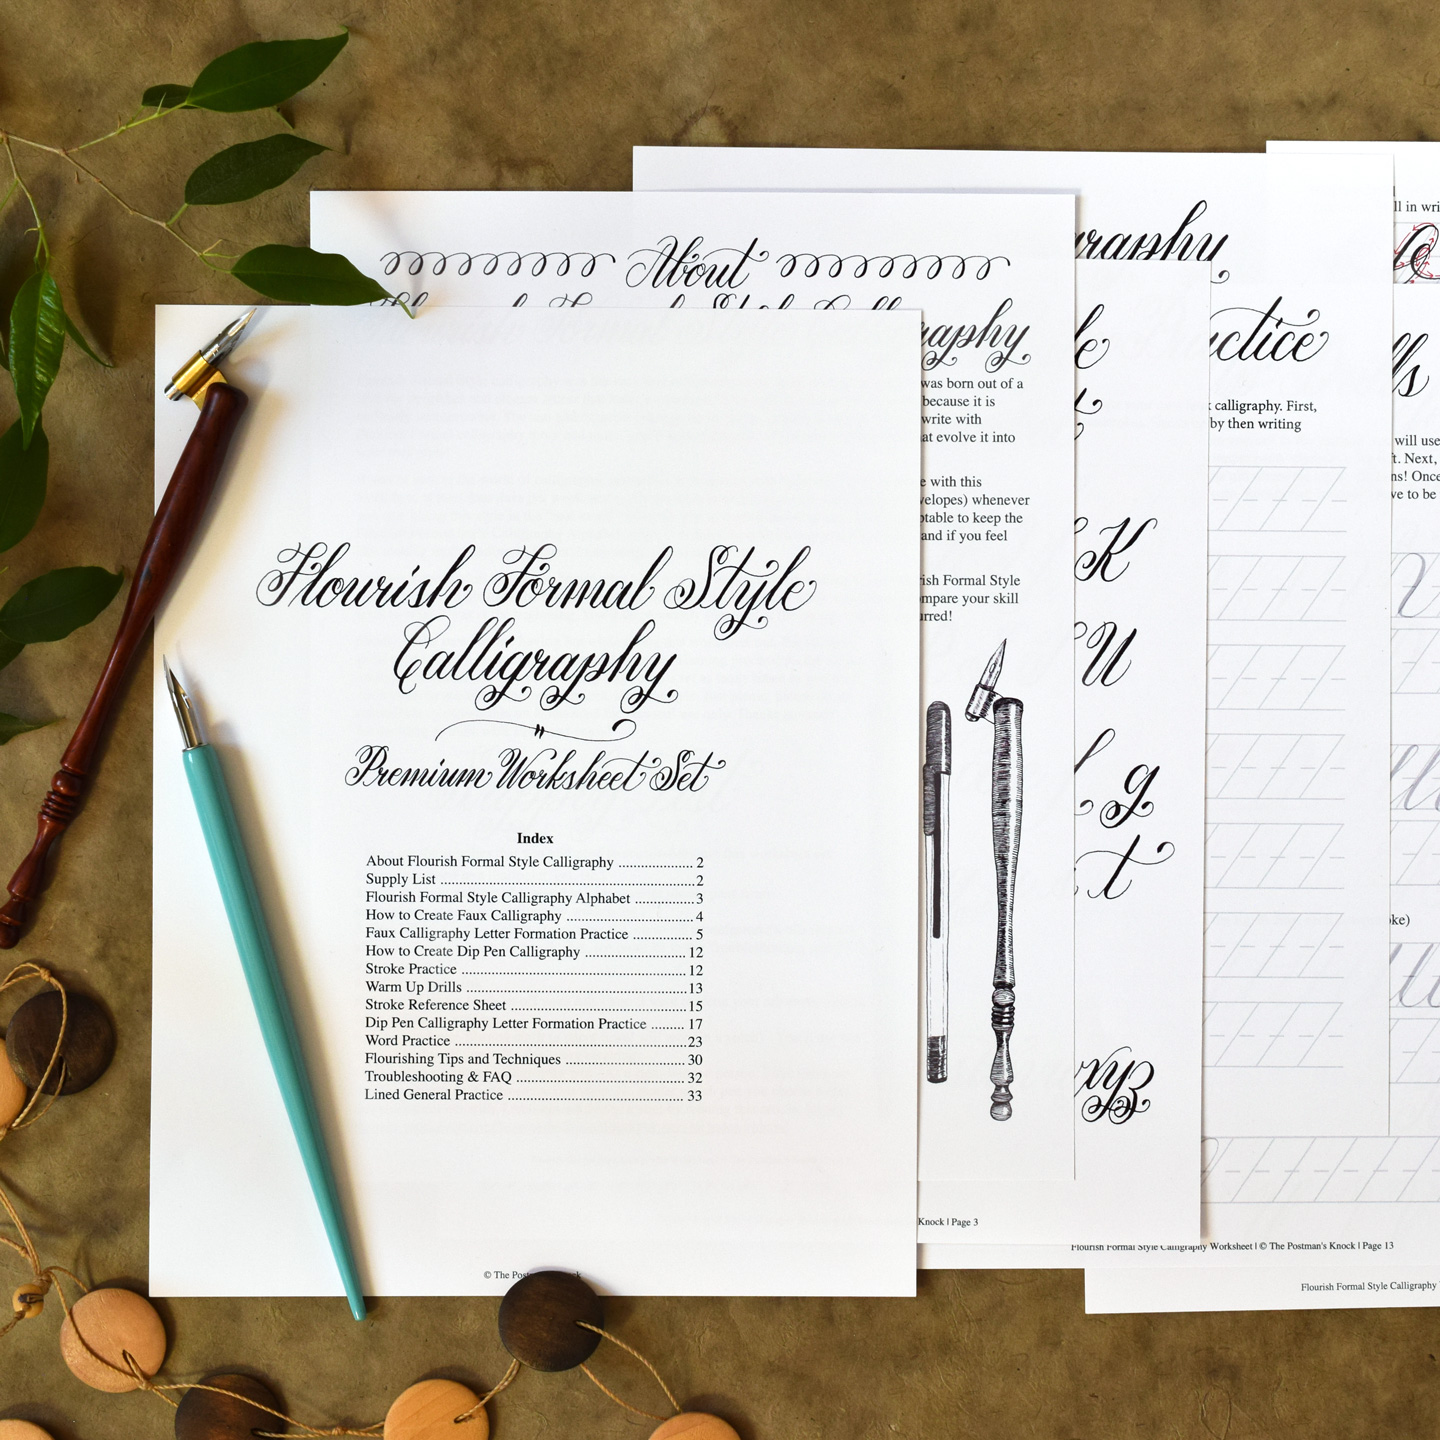 Flourish Formal Style
Calligraphy
Premium Worksheet Set
Index
About Flourish Formal Style Calligraphy .................... 2
Supply List .................... 2
Flourish Formal Style Calligraphy Alphabet .................... 3
How to Create Faux Calligraphy .................... 4
Faux Calligraphy Letter Formation Practice .................... 5
How to Create Dip Pen Calligraphy .................... 12
Stroke Practice .................... 12
Warm Up Drills .................... 13
Stroke Reference Sheet .................... 15
Dip Pen Calligraphy Letter Formation Practice ......... 17
Word Practice .................... 23
Flourishing Tips and Techniques .................... 30
Troubleshooting & FAQ .................... 32
Lined General Practice .................... 33
© The
About
was born out of a
because it is
write with
evolve it into
with this
whenever
to keep the
and if you feel
Formal Style
your skill
Knock | Page 3
K
U
g
t
xyz
calligraphy. First,
by then writing
Flourish Formal Style Calligraphy Worksheet | © The Postman's Knock | Page 13
in
will use
Next,
Once
to be
Flourish Formal Style Calligraphy